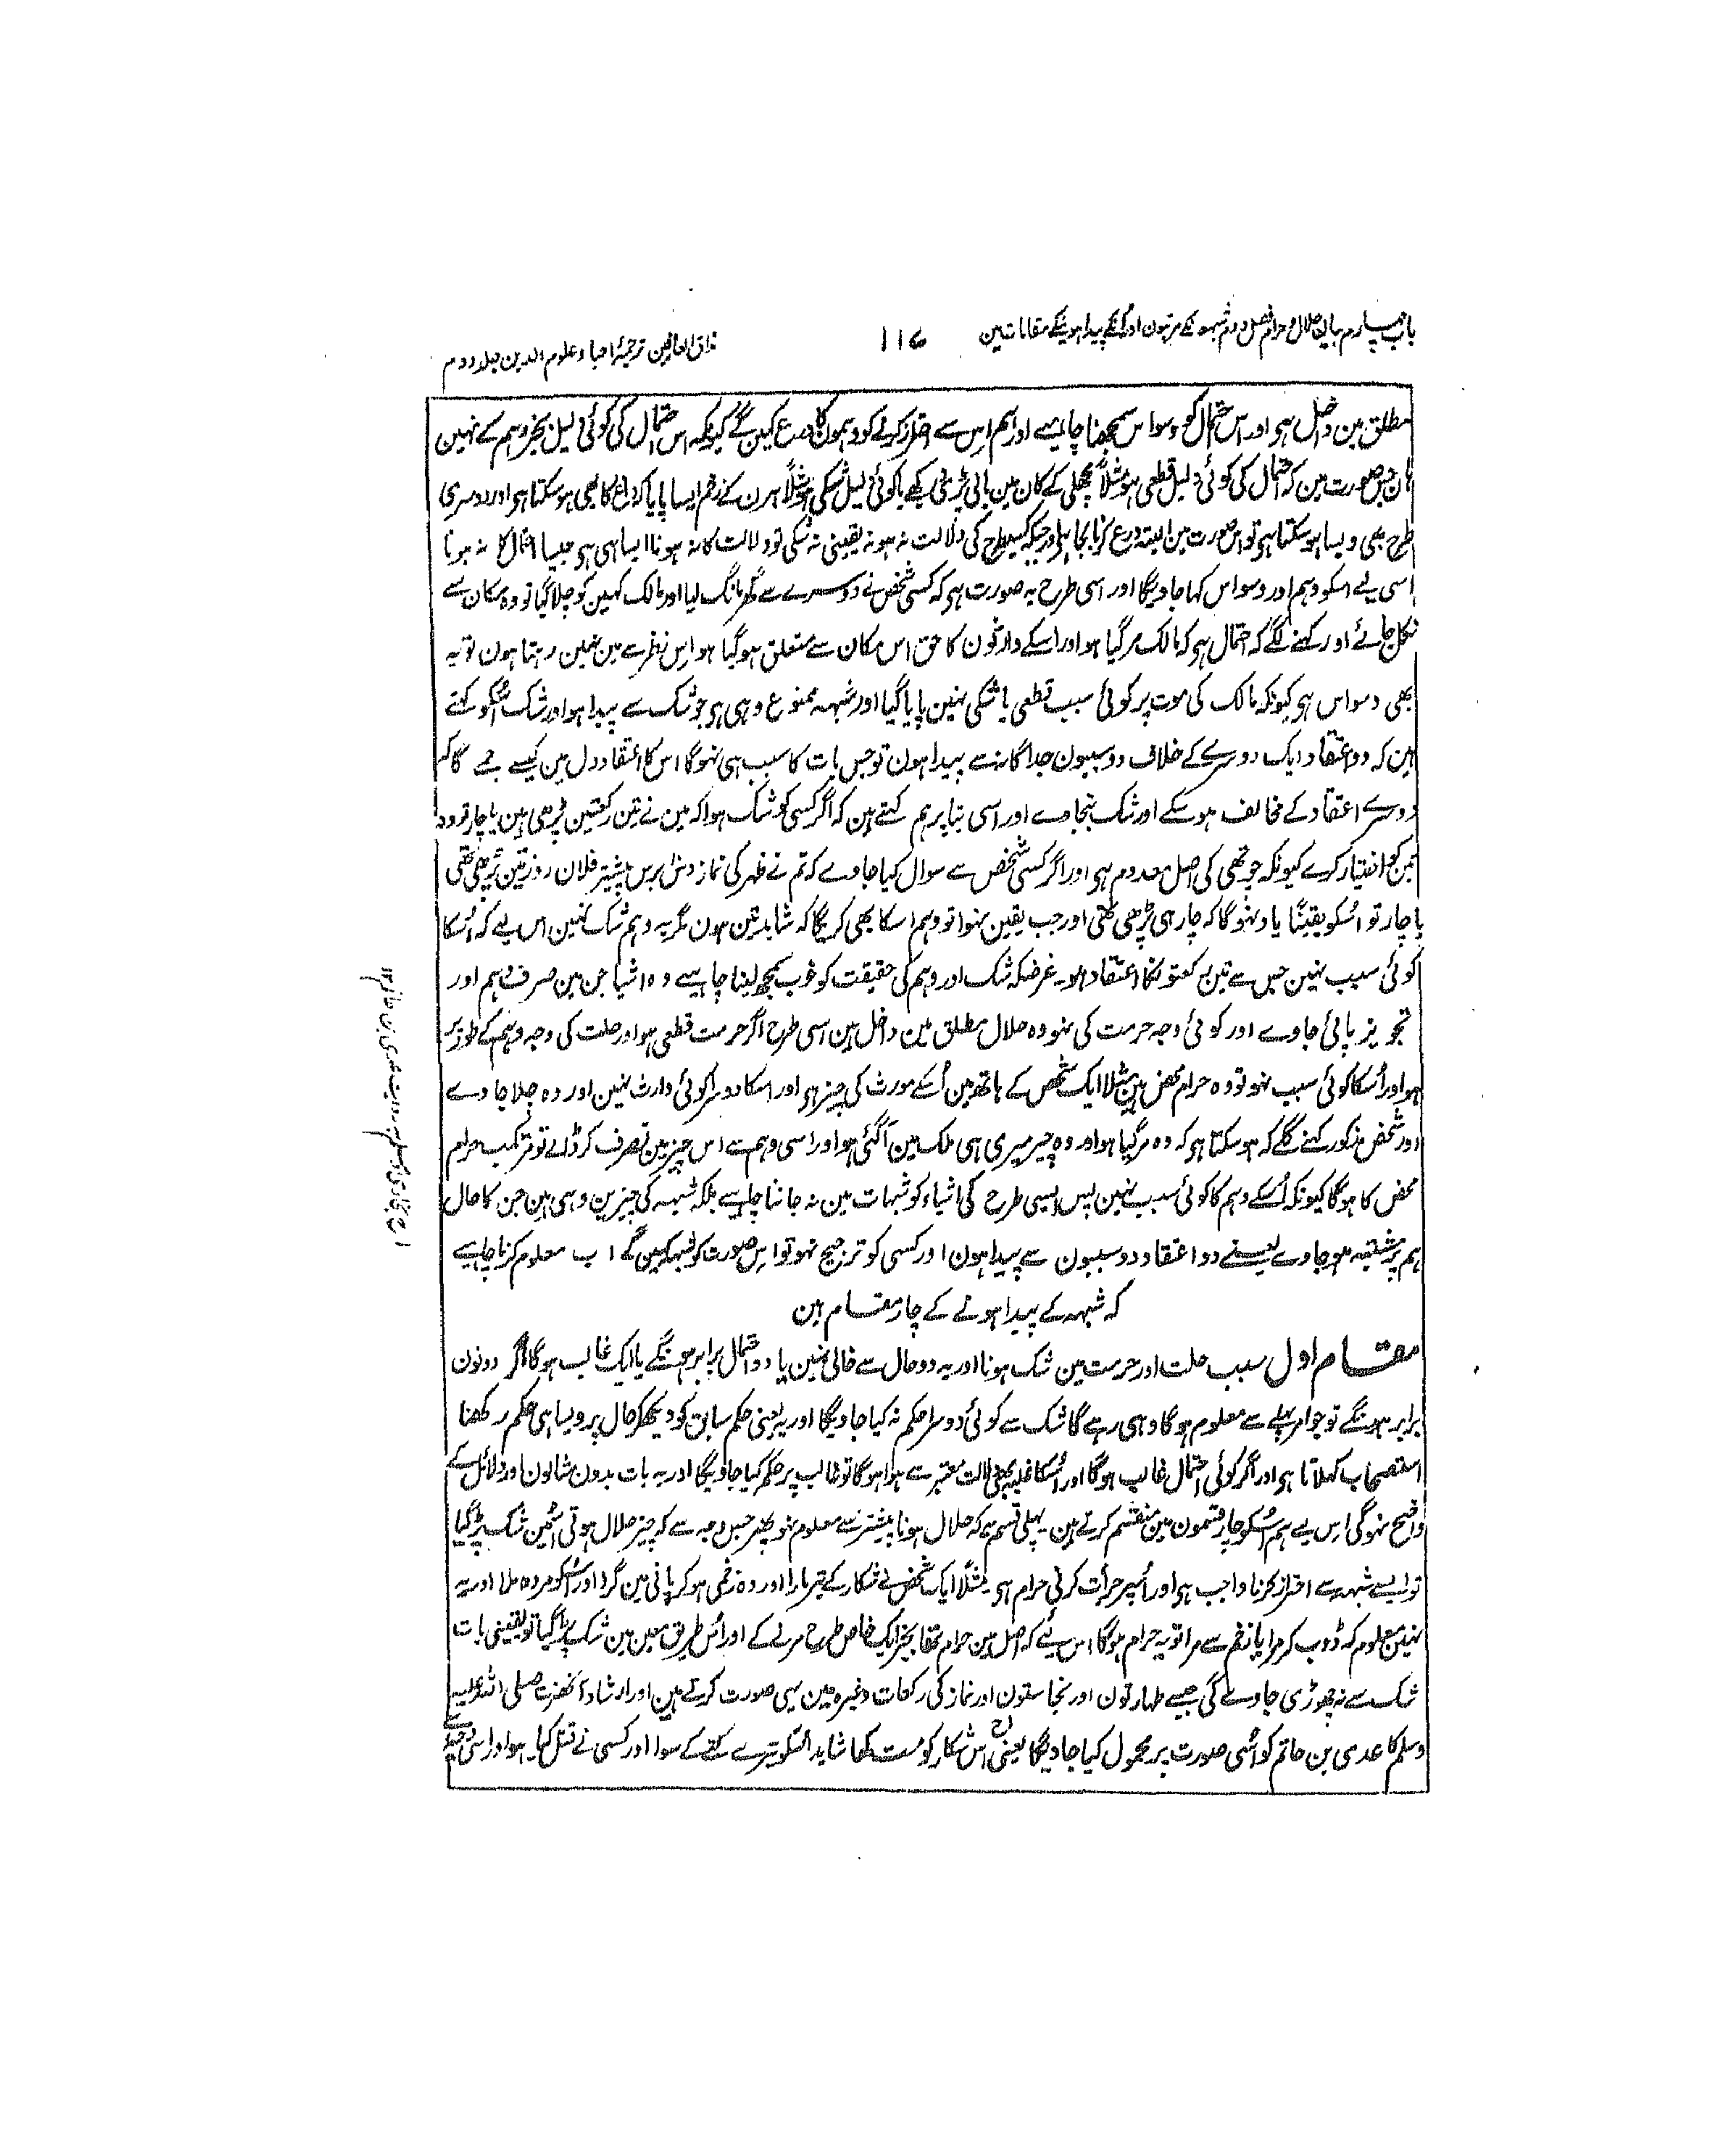 باب چہارم بیان حلال و حرام فصل دوم شبہونکے مرتبون اور اُنکے پیدا ہونیکے مقامات مین
۱۱۶
مذاق العارفین ترجمۂ احیاء علوم الدین جلد دوم
مطلق مین داخل ہی اور اس احتمال کو وسواس سمجھنا چاہیے اور ہم اس سے احتراز کرنے کو وہمیون کا ورع کہین گے کیونکہ اس احتمال کی کوئی دلیل بجز وہم کے نہین
ہان جس صورت مین کہ احتمال کی کوئی دلیل قطعی ہو مثلاً مچھلی کے کان مین بالی پڑی دیکھے یا کوئی دلیل شکی ہو مثلاً ہرن کے زخم ایسا پایا کہ داغ کا بھی ہو سکتا ہی اور دوسری
طرح بھی ویسا ہو سکتا ہی تو اس صورت مین البتہ ورع کرنا بجا ہی اور جبکہ کسیطرح کی دلالت نہ ہو نہ یقینی نہ شکی تو دلالت کا نہ ہونا ایسا ہی ہی جیسا احتمال کا نہ ہونا
اسی لیے اسکو وہم اور وسواس کہا جاویگا اور اسی طرح یہ صورت ہی کہ کسی شخص نے دوسرے سے گھر مانگ لیا اور مالک کہین کو چلا گیا تو وہ مکان سے
نکل جائے اور کہنے لگے کہ احتمال ہی کہ مالک مر گیا ہو اور اسکے وارثون کا حق اس مکان سے متعلق ہو گیا ہو اس نظر سے مین نہین رہتا ہون تو یہ
بھی وسواس ہی کیونکہ مالک کی موت پر کوئی سبب قطعی یا شکی نہین پایا گیا اور شبہہ ممنوع وہی ہی جو شک سے پیدا ہو اور شک اُسکو کہتے
ہین کہ دو اعتقاد ایک دوسرے کے خلاف دو سببون جداگانہ سے پیدا ہون تو جس بات کا سبب ہی نہوگا اس کا اعتقاد دل مین کیسے جمے گا کہ
دوسرے اعتقاد کے مخالف ہو سکے اور شک بنجاوے اور اسی بنا پر ہم کہتے ہین کہ اگر کسی کو شک ہوا کہ مین نے تین رکعتین پڑھی ہین یا چار تو وہ
تین کو اختیار کرے کیونکہ چوتھی کی اصل معدوم ہی اور اگر کسی شخص سے سوال کیا جاوے کہ تم نے ظہر کی نماز دس برس پیشتر فلان روز تین پڑھی تھی
یا چار تو اُسکو یقیناً یاد نہوگا کہ چار ہی پڑھی تھی اور جب یقین نہوا تو وہم اسکا بھی کریگا کہ شاید تین ہون مگر یہ وہم شک نہین اس لیے کہ اُسکا
کوئی سبب نہین جس سے تین رکعتونکا اعتقاد ہو۔ غرضکہ شک اور وہم کی حقیقت کو خوب سمجھ لینا چاہیے وہ اشیا جن مین صرف وہم اور
تجویز پائی جاوے اور کوئی وجہ حرمت کی نہو وہ حلال مطلق مین داخل ہین اسی طرح اگر حرمت قطعی ہو اور حلت کی وجہ وہم کے طور پر
ہو اور اُسکا کوئی سبب نہو تو وہ حرام محض ہین مثلا ایک شخص کے ہاتھ مین اُسکے مورث کی چیز ہو اور اسکا دوسرا کوئی وارث نہین اور وہ چلا جاوے
اور شخص مذکور کہنے لگے کہ ہو سکتا ہی کہ وہ مر گیا ہو اور وہ چیز میری ہی ملک مین آگئی ہو اور اسی وہم سے اس چیز مین تصرف کر ڈالے تو مرتکب حرام
محض کا ہوگا کیونکہ اُسکے وہم کا کوئی سبب نہین پس ایسی طرح کی اشیاء کو شبہات مین نہ جاننا چاہیے بلکہ شبہہ کی چیزین وہی ہین جن کا حال
ہم پر مشتبہ ہو جاوے یعنے دو اعتقاد دو سببون سے پیدا ہون اور کسی کو ترجیح نہو تو اس صورت کو شبہہ کہین گے اب معلوم کرنا چاہیے
کہ شبہہ کے پیدا ہونے کے چار مقام ہین
مقام اول سبب حلت اور حرمت مین شک ہونا اور یہ دو حال سے خالی نہین یا دو احتمال برابر ہونگے یا ایک غالب ہوگا اگر دونون
برابر ہونگے تو جو امر پہلے سے معلوم ہوگا وہی رہے گا شک سے کوئی دوسرا حکم نہ کیا جاویگا اور یہ یعنی حکم سابق کو دیکھکر حال پر ویسا ہی حکم رکھنا
استصحاب کہلاتا ہی اور اگر کوئی احتمال غالب ہوگا اور اُسکا غلبہ بھی دلالت معتبر سے ہوا ہوگا تو غالب پر حکم کیا جاویگا اور یہ بات بدون مثالون اور دلائل کے
واضح نہوگی اس لیے ہم اُسکو چار قسمون مین منقسم کرتے ہین پہلی قسم یہ کہ حلال ہونا پیشتر سے معلوم نہو پھر جس وجہ سے کہ چیز حلال ہوتی اُسمین شک پڑ گیا
تو ایسے شبہہ سے احتراز کرنا واجب ہی اور اُسپر جرأت کرنی حرام ہی مثلاً ایک شخص نے شکار کے تیر مارا اور وہ زخمی ہو کر پانی مین گرا اور اُسکو مردہ ملا اور یہ
نہین معلوم کہ ڈوب کر مرا یا زخم سے مرا تو یہ حرام ہوگا اس لیے کہ اصل مین حرام تھا بجز ایک خاص طرح مرنے کے اور اُس طریق معین مین شک پڑ گیا تو یقینی بات
شک سے نہ چھوڑی جاوے گی جیسے طہارتون اور نجاستون اور نماز کی رکعات وغیرہ مین یہی صورت کرتے ہین اور ارشاد آنحضرت صلی اللہ علیہ
وسلم کا عدی بن حاتم کو اُسی صورت پر محمول کیا جاویگا یعنی اس شکار کو مت کھا شاید اُسکو تیرے کتے کے سوا اور کسی نے قتل کیا ہو اور اسی وجہ سے